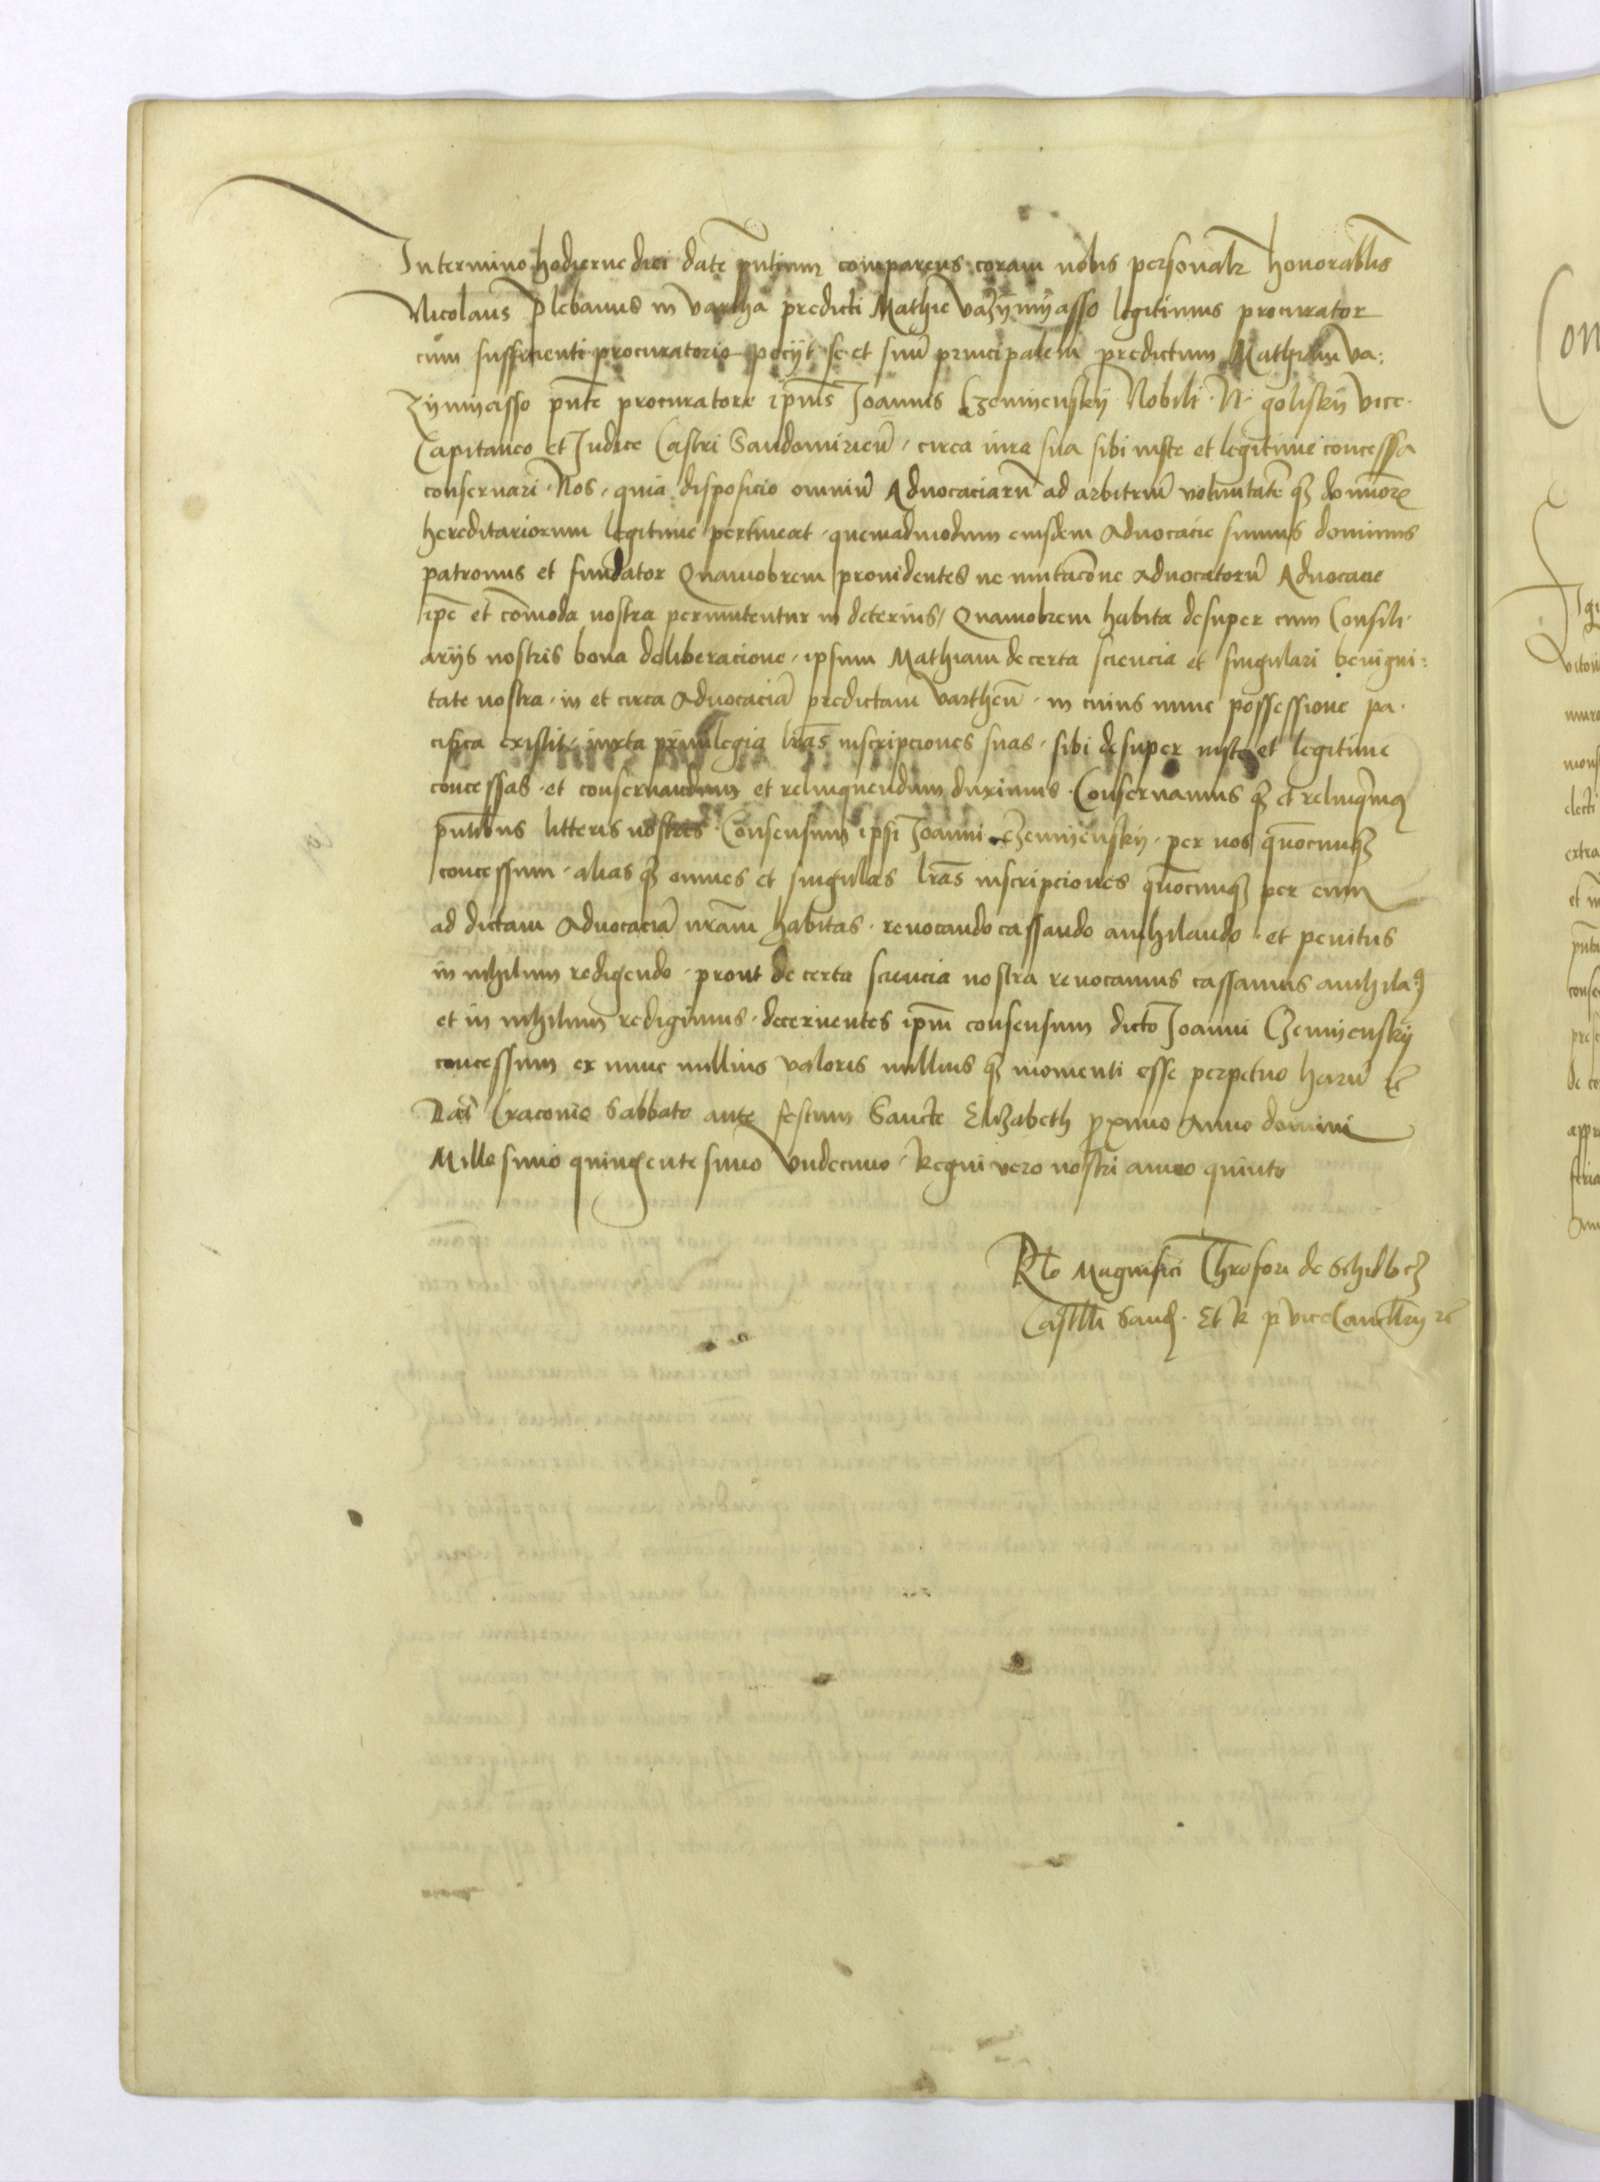 In termino hodierne diei date pñtium comparens coram nobis personalr honorablis
Nicolaus Plebanus in vartha predicti Mathie vazÿmÿasso legitimus procurator
cum sufficienti procuratorio pecÿt se et suũ principalem predictum Mathiam va:
zÿmÿasso pñte procuratore ipius Joannis Czemÿenskÿ Nobili N. golskÿ vice
Capitaneo et Judice Castri Sandomirieñ, circa iura sua sibi iuste et legitime concessa
conservari. Nos, quia disposicio omniũ Advocaciarũ ad arbitriũ voluntatẽ qz dominorꝝ
hereditariorum legitime pertineat, quemadmodum eiusdem Advocacie sumus dominus
patronus et fundator Quamobrem providentes ne mutacõne advocatorũ Advocacie
ipẽ et cõmoda nostra permutentur in deterius, Quamobrem habita desuper cum Consili-
arÿs nostris bona deliberacione, ipsum Mathiam de certa sciencia et singulari benigni:
tate nostra, in et circa Advocaciã predictam vartheñ, in cuius nunc possessione pa-
cifica existit, iuxta privilegia lrãs inscripciones suas, sibi desuper iuste et legitime
concessas, et conservandum et relinquendum duximus. Conservamus qz et relinqimꝯ
pñtibus litteris nostris. Consensum ipsi Joanni Czemÿenskÿ, per nos quõcunqz
concessum, alias qz omnes et singulas lrãs inscripciones quõcunqz per eum
ad dictam Advocaciã nrãm habitas, revocando cassando anihilando, et penitus
in nihilum redigendo, prout de certa sciencia nostra revocamus cassamus anihilaꝯ
et in nihilum redigimus, decernentes ipm̃ consensum dicto Joanni Czemÿenskÿ
concessum ex nunc nullius valoris nullius qz momenti esse perpetuo harũ &c
Dat̃ Cracovie Sabbato ante festum Sancte Elizabeth pxĩmo Anno domini
Millesimo quingentesimo Undecimo, Regni vero nostri anno quinto
Rlo Magnifici Chrofori de Schidlovecz
Castllñ Sand. Et R p vice Cancllrÿ &c